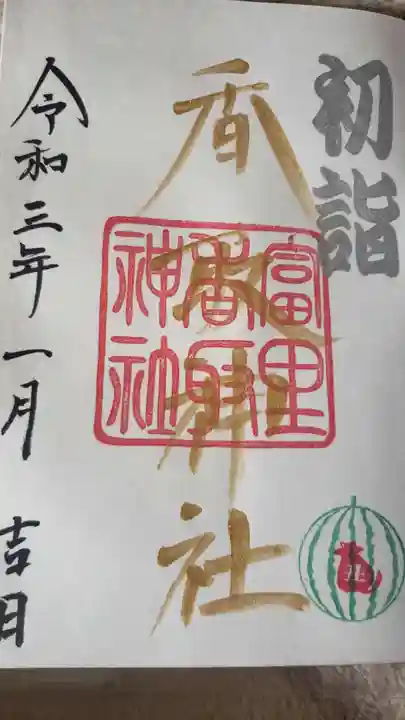 初詣
香取神社
富里
香取
神社
丑
令和三年一月 吉日